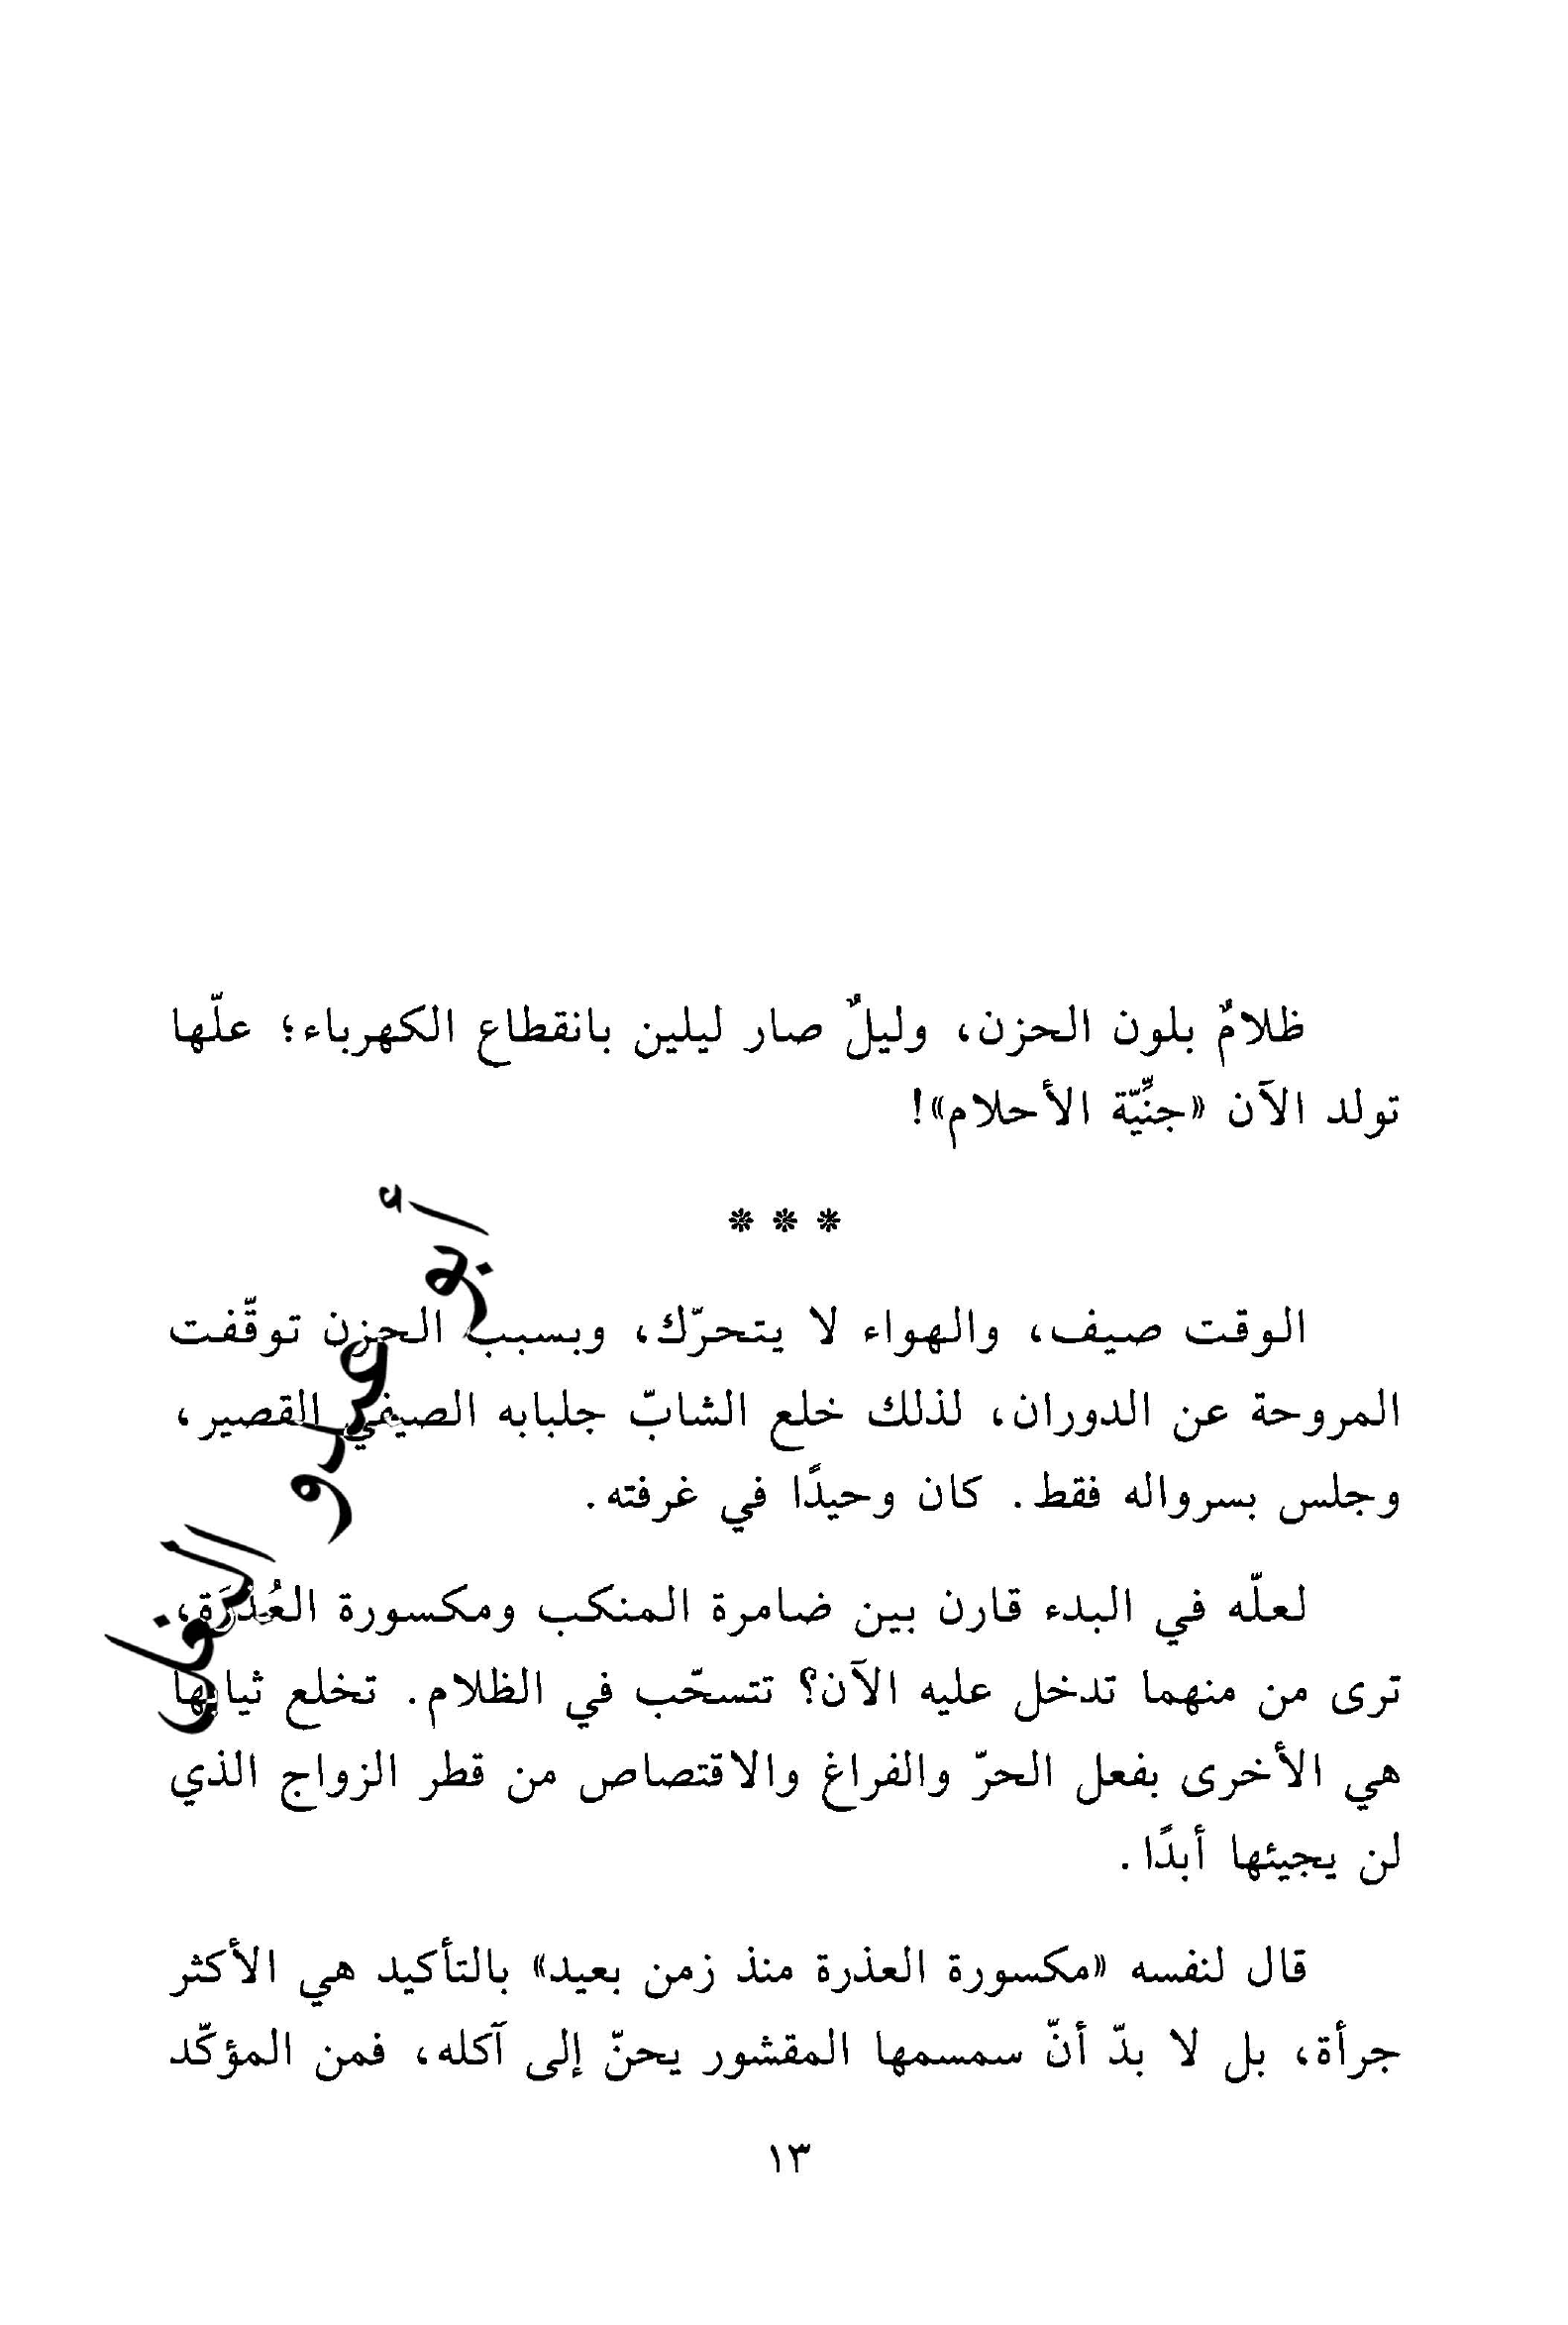 ظلامٌ بلون الحزن، وليلٌ صار ليلين بانقطاع الكهرباء؛ علّها
تولد الآن «جنِّيّة الأحلام»!
* * *
الوقت صيف، والهواء لا يتحرّك، وبسبب الحزن توقّفت
المروحة عن الدوران، لذلك خلع الشابّ جلبابه الصيفي القصير،
وجلس بسرواله فقط. كان وحيدًا في غرفته.
لعلّه في البدء قارن بين ضامرة المنكب ومكسورة العُذرَة،
ترى من منهما تدخل عليه الآن؟ تتسحّب في الظلام. تخلع ثيابها
هي الأخرى بفعل الحرّ والفراغ والاقتصاص من قطر الزواج الذي
لن يجيئها أبدًا.
قال لنفسه «مكسورة العذرة منذ زمن بعيد» بالتأكيد هي الأكثر
جرأة، بل لا بدّ أنّ سمسمها المقشور يحنّ إلى آكله، فمن المؤكّد
١٣
أبو عبدو البغل